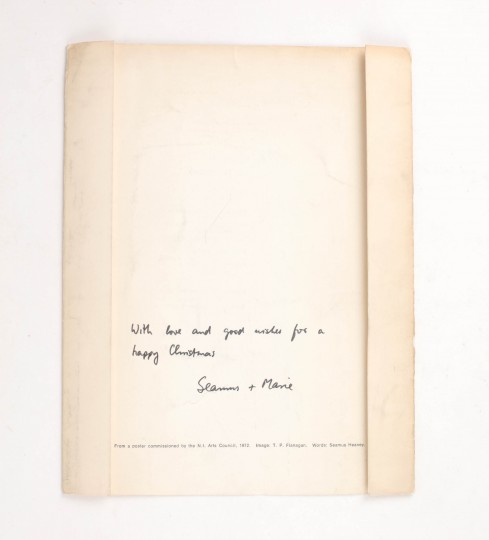 With love and good wishes for a
happy Christmas
Seamus + Marie
From a poster commissioned by the N.I. Arts Council, 1972. Image: T. P. Flanagan. Words: Seamus Heaney